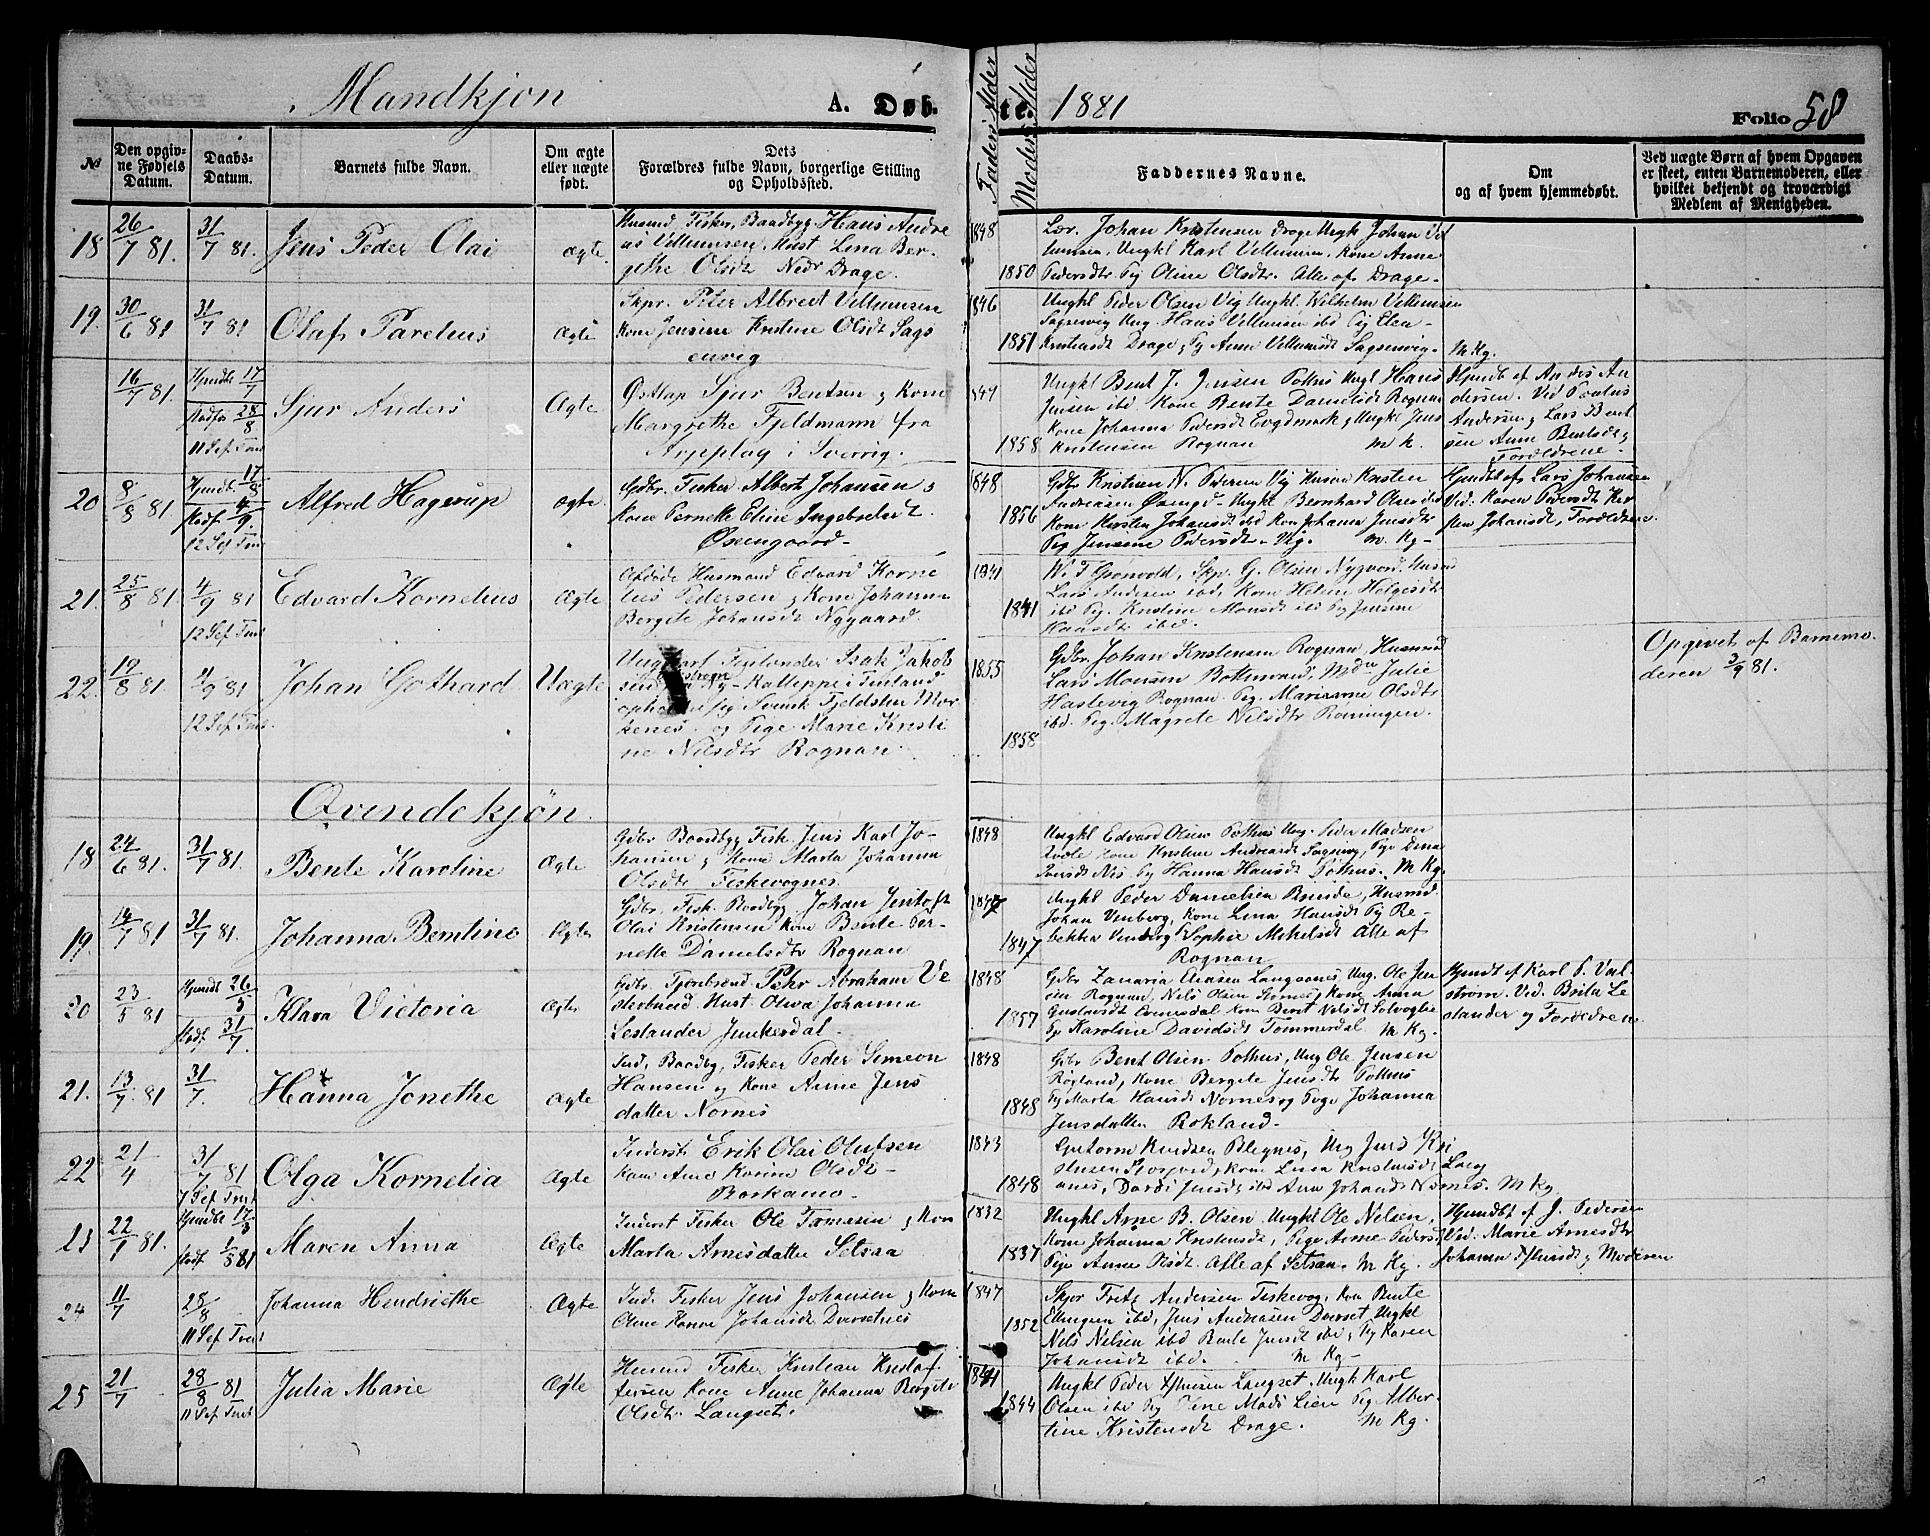 Mandkjøn
A. Døb-
te.
1881
Folio 58
Faders Alder
Moders Alder
№
Den opgiv-
ne Fødsels
Datum.
Daabs-
Datum.
Barnets fulde Navn.
Om ægte
eller uægte
født.
Dets
Forældres fulde Navn, borgerlige Stilling
og Opholdssted.
Faddernes Navne.
Om
og af hvem hjemmedøbt.
Ved uægte Børn af hvem Opgaven
er skeet, enten Barnemoderen, eller
hvilket bekjendt og troværdigt
Medlem af Menigheden.
18
26/7 81.
31/7 81.
Jens Peder Olai
ægte
Husmd Fisker, Baadbyg Hans Andre
as Vellumsen, Hust Lina Ber-
gethe Olsdt Nedr Drage.
1848
1850
Lær. Johan Kristensen Drage Ungk Johan Vel
lumsen, Ungkl Karl Vellumsen, Kone Anne
Pedersdtr Pig Oline Olsdtr. Alle af Drage-
19.
30/6 81
31/7 81
Olaf Parelius
Ægte
Skpr. Peter Albredt Vellumsen
Kone Jensine Kristine Olsdt Sags
envig
1846
1851
Ungkl Peder Olsen Vig Ungkl. Wilhelm Vellumsen
Sagsenvig Ung. Hans Vellumsen ibd Pig Elen
Kristiansdt Drage, Pg Anne Vellumsdt Sagsenvig- M Kg.
16/7 81.
Hjmdbt 17/7
Stadf 28/8
11 Sef Trnt
Sjur Anders
Ægte
Østlap Sjur Bentsen og Kone
Margrethe Fjeldmann fra
Arpplog i Sverrig.
1858
Ungkl Bent J. Jensen Pothus Ungk Hans
Jensen ibd Kone Bente Danielsdt Rognan
Kone Johanna Pedersdt Evgdmark, Ungkl Jens
Kristensen Rognan M k.
Hjmdbt af Anders An
dersen. Vid Paulus
Andersen, Lars Bent
sen Anne Bentsdt,
Forældrene
20
8/8 81
Hjmdbt. 17/8
Stadf. 4/9.
12 Sef Trnt
Alfred Hagerup
ægte
Gdbr. Fisker Albert Johansen og
Kone Pernette Eline Ingebrigtsdt
Øsengaard-
1848
1856
Gdbr Kristian N. Pedersen Vig Husm Kristen
Andreasen Øsengd- Ungkl Bernhard Olsen ibd
Kone Kirsten Johansdt ibd Kone Johanna Jensdtr
Pig Jensine Pedersdtr. Vig. M. Kg-
Hjmdbt af Lars Johansen
Vid. Karen Pedersdt Kir
sten Johansdt, Forældrene.
21.
25/8 81
4/9 81
12 Sef Trnt
Edvard Kornelius
Ægte
Afdøde Husmand Edvard Korne
lius Pedersen og Kone Johanna
Bergite Johansdt Nygaard.
1841
1841
W. F Grønvold, Skp. G. Olsen Nygaard. Husmd
Lars Andersen ibd, Kone Helene Helgesdtr
ibd Pig. Kristine Monsdt ibd Pg Jensine
Hansdtr ibd.
22.
19/8 81
4/9 81
12 Sef Trnt.
Johan Gothard
Uægte
Ungkarl Isak Jakob
sen Ny-Kalleppe i Finland
opholder sig Svensk Fjeldstu Mor
tenes. og Pige Marie Kristi
ne Nilsdtr Rognan.
1855
1858
Gdbr. Johan Kristensen Rognan, Husmd
Lars Monsen Bothnvand, Mdm Julie
Hasleviq Rognan. Pig. Marianne Olsdtr
ibd. Pig Magrete Nilsdtr Røningen.
Opgivet af Barnemo
deren 3/9 81.
Qvindekjøn.
18
24/6 81.
31/7 81.
Bente Karoline
Ægte
Gdbr Baadbyg Fisk. Jens Karl Jo-
hansen og Kone Marta Johanna
Olsdtr Fiskevognes.
1848
Ungkl Edvard Olsen Pothus Ung. Peder Madsen
Kone Kristine Andreasdt Sagsenvig, Pige Dina
Jensdt Nes Pg Hanna Hansdt Pothus. M Kg.
19.
14/7 81
31/7 81.
Johanna Bentine
Ægte
Gdbr. Fisk. Baadbyg Johan Jentoft
Olai Kristensen Kone Bente Per-
nette Danielsdtr Rognan
1847
1847
Ungkl Peder Danielsen Rinde, Husmd
Johan Venberg, Kone Lina Hansdt Pg Re-
bekka Venberg Sophie Mikelsdt Alle af
Rognan
20
23/5 81
Hjmdbt 26/5
Stadf. 31/7
Klara Victoria
Ægte
Gdbr. Tjønbrænd Pehr Abraham Ve
sterlund Hust Olava Johanna
Leslander Junkerdal.
1848
1857
Gdbr Zakaria Eliasen Langaanes, Ung. Ole Jen
sen Rognan, Nils Olsen Storneset, Kone Anna
Gustavsdt Evenesdal Kone Berit Nilsdt Solvogle
Pg Karoline Davidsdt Tømmerdal M Kg.
Hjmdt af Karl P. Val
strøm. Vid. Brita Le
slander og Forældrene
21.
13/7 81
31/7.
Hanna Jonethe
Ægte
Ind. Baadby, Fisker Peder Simeon
Hansen og Kone Anne Jens
datter Nornes
1848
1848
Gdbr Bent Olsen Pothus, Ung Ole Jensen
Røgland, Kone Bergite Jensdtr Pothus
Pg Marta Hansdt Nornes og Pige Johanna
Jensdatter Rokland.
22
21/4
31/7 81
7 Sef Trnt
Olga Kornelia
Ægte
Inderst Erik Olai Olufsen
Kone Anne Karine Olsdt
Borkamo-
1843
1848
Gutorm Knudsen Blegnes, Ung Jens Kri
stensen Storjord, Kone Lina Kristensdt Lang
anes, Dordi Jensdt ibd Ane Johansdt Nornes. M Kg
23
22/1 81.
Hjmdbt 17/3
Stadf 1/8 81
Maren Anna
Ægte
Inderst Fisker Ole Tomasen og Kone
Marta Arnesdatter Setsaa
1832
1837
Ungkl Arne B. Olsen, Ungkl Ole Nilsen,
Kone Johanna Kristensdt, Pige Anne Pedersdt
Pige Anna Olsdt. Alle af Setsaa. M Kg.
Hjmdbt af J. Pedersen
Vid. Marie Arnesdtr
Johanna Kristensdt og Moderen
24
11/7
28/8
11 Sef Trnt
Johanna Hendriethe
Ægte
Ind. Fisker Jens Johansen og Kone
Oline Hanna Johansdt Dverset
1847
1852
Skpr Fritz Andersen Fiskevog, Kone Bente
Ellingsen ibd, Jens Andreasen Dverset Ungkl
Nils Nilsen ibd Bente Jensdt ibd, Pg Karen
Johansdt ibd. M Kg-
25
21/7
28/8 81
11 Sef Trnt
Julia Marie
Ægte
Husmd Fisker Kristian Kristof
fersen Kone Anne Johanna Bergite
Olsdt. Langset.
1841
1844
Ungkl Peder Langset. Ungk Karl
Olsen ibd Pg Pine Mads Lien Pig Alber
tine Kristensdt Drage. M Kg.